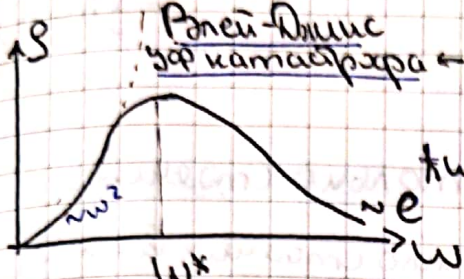 Рэлей-Джинс
уф катастрфа ←
ρ
~ω²
~e
ω*
ω